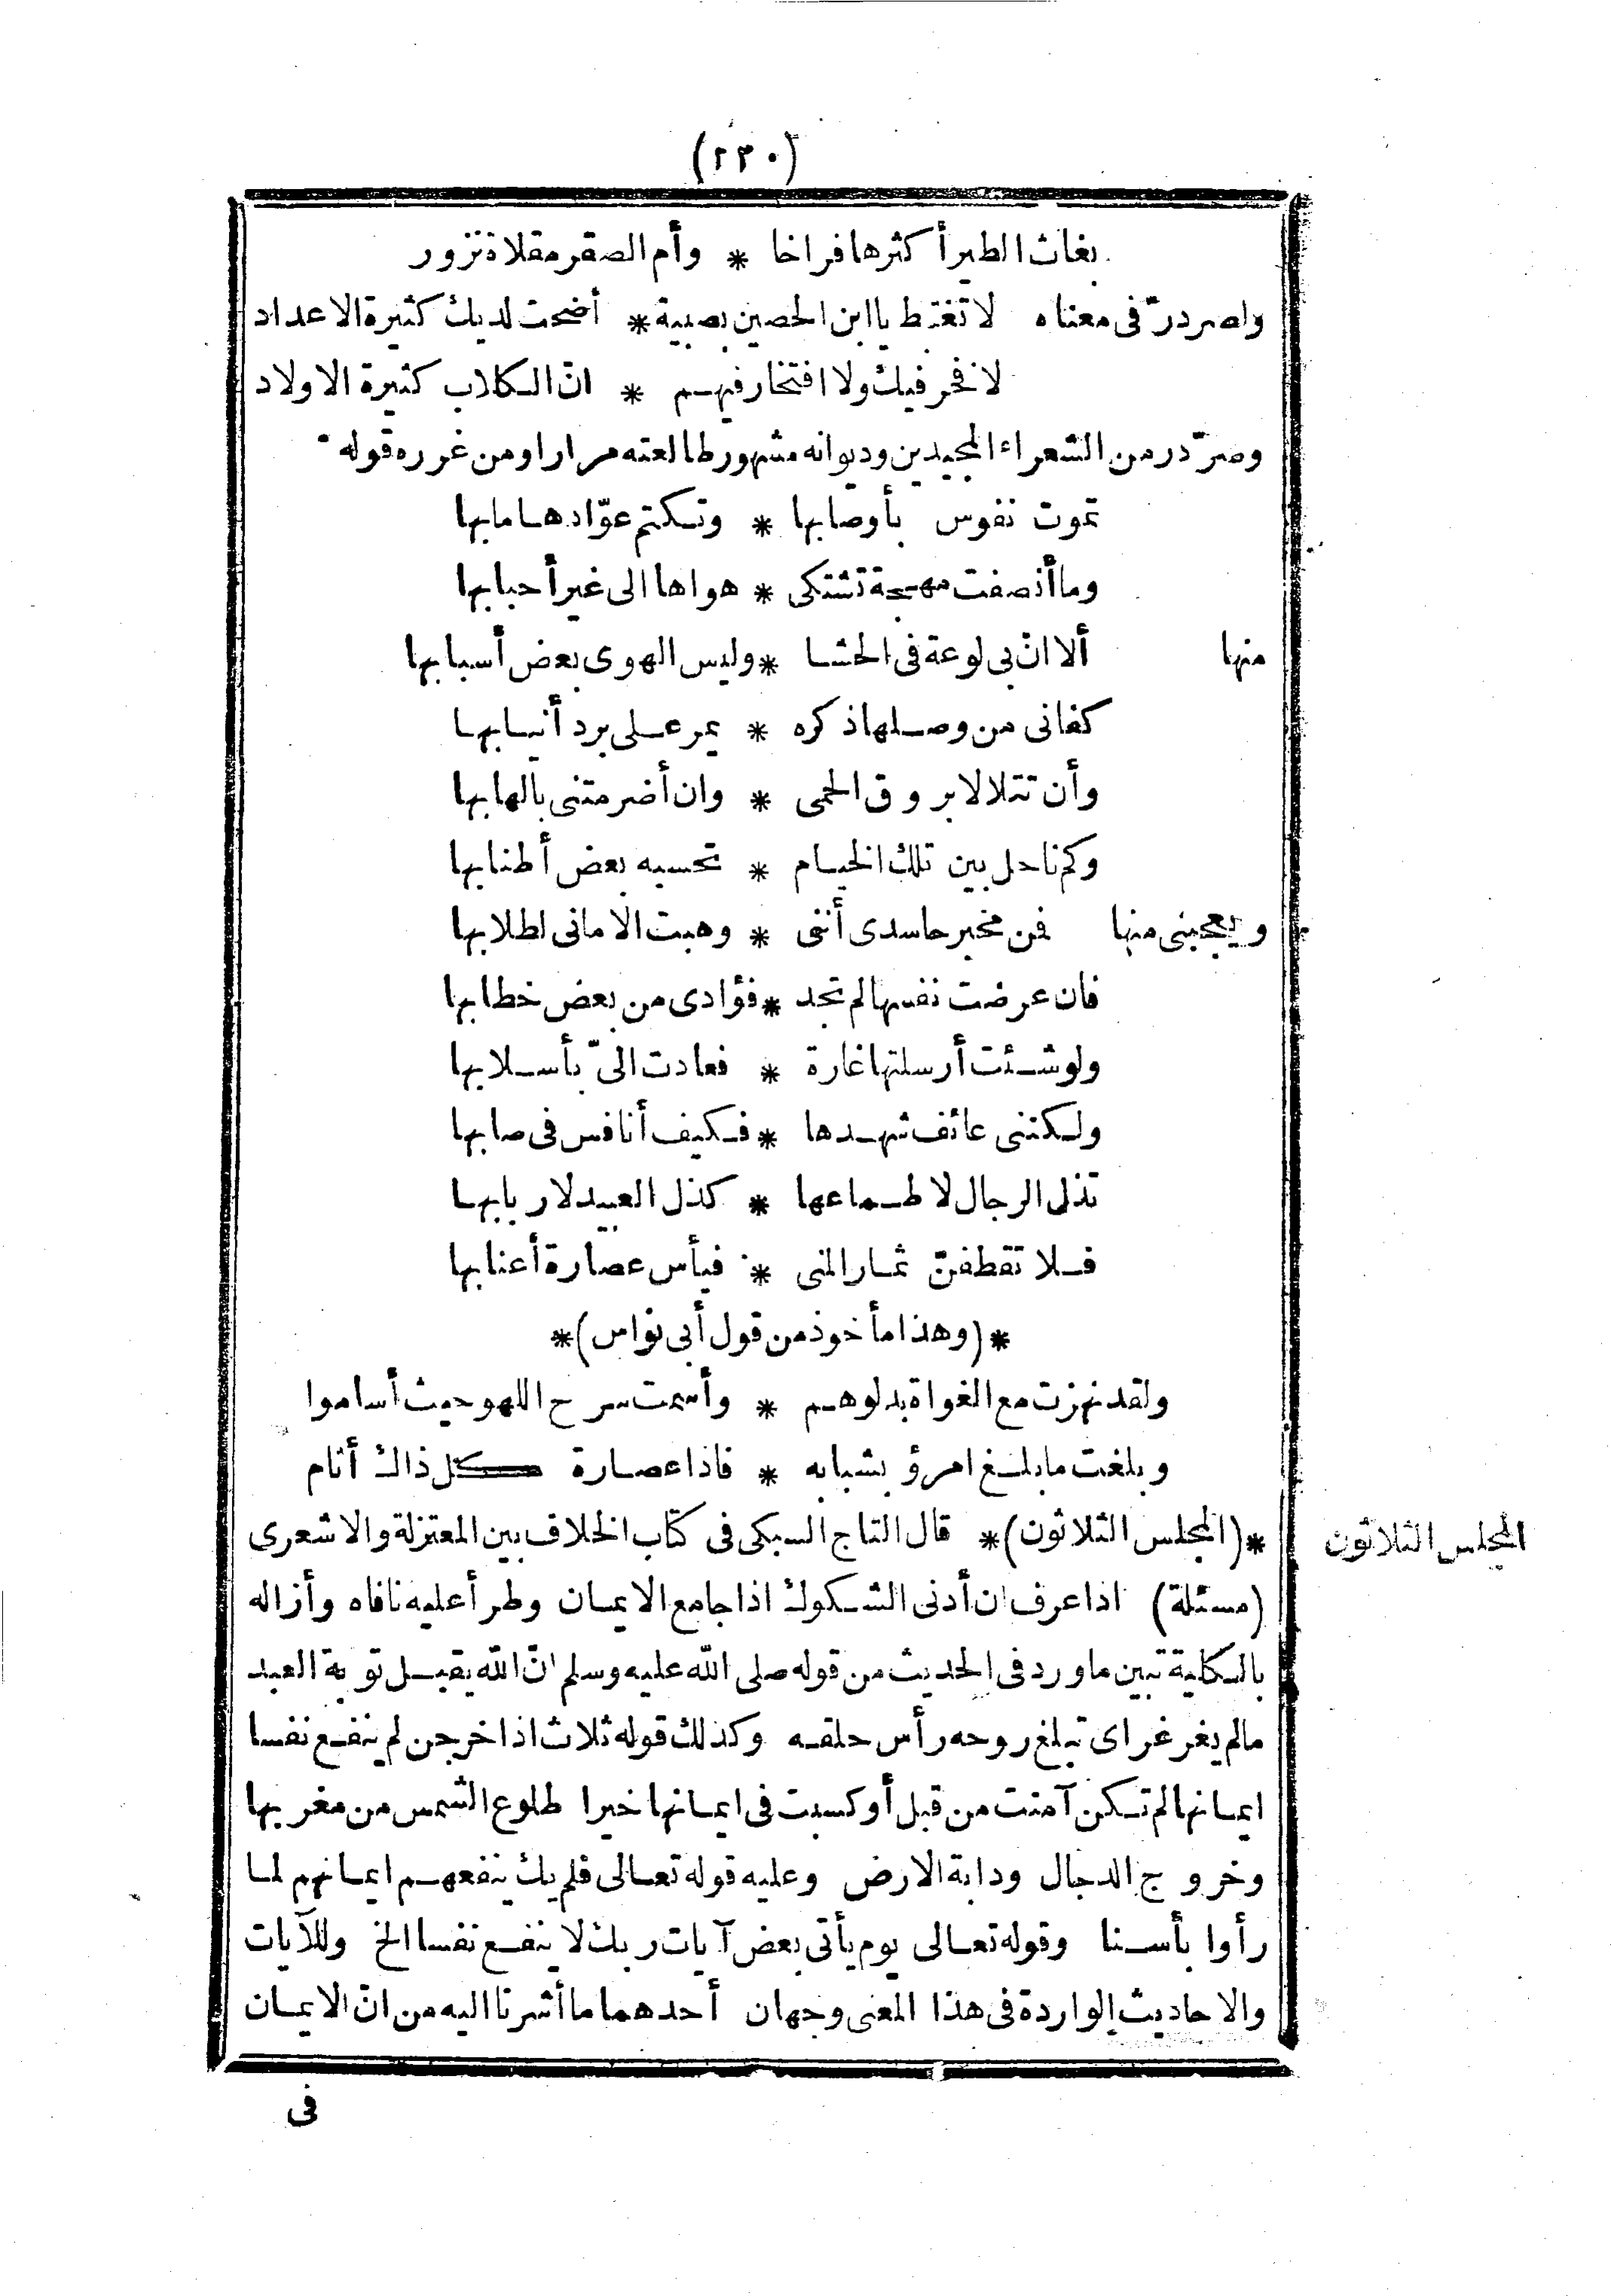 (٢٣٠)
بغاث الطير أكثرها فراخا * وأم الصقر مقلاة نزور
ولصردرّ فى معناه لا تغتبط يا ابن الحصين بصبية * أضحت لديك كثيرة الاعداد
لا فخر فيك ولا افتخار فيهم * انّ الكلاب كثيرة الاولاد
وصرّدر من الشعراء المجيدين وديوانه مشهور طالعته مرارا ومن غرره قوله
تموت نفوس بأوصابها * وتكتم عوّادها ما بها
وما أنصفت مهجة تشتكى * هواها الى غير أحبابها
منها ألا انّ بى لوعة فى الحشا * وليس الهوى بعض أسبابها
كفانى من وصلها ذكره * يمر على برد أنيابها
وأن تتلالا بروق الحمى * وان أضرمتنى بالهابها
وكم ناحل بين تلك الخيام * تحسبه بعض أطنابها
ويعجبنى منها فمن مخبر حاسدى أننى * وهبت الامانى لطلابها
فان عرضت نفسها لم تجد * فؤادى من بعض خطابها
ولو شئت أرسلتها غارة * فعادت الىّ بأسلابها
ولكننى عائف شهدها * فكيف أنافس فى صابها
تذل الرجال لاطماعها * كذل العبيد لاربابها
فلا تقطفنّ ثمار المنى * فبأس عصارة أعنابها
*(وهذا مأخوذ من قول أبى نواس)*
ولقد نهزت مع الغواة بدلوهم * وأسمت سرح اللهو حيث أساموا
وبلغت ما بلغ امرؤ بشبابه * فاذا عصارة كل ذاك أثام
*(المجلس الثلاثون)* قال التاج السبكى فى كتاب الخلاف بين المعتزلة والاشعرى
المجلس الثلاثون
(مسئلة) اذا عرف ان أدنى الشكوك اذا جامع الايمان وطرأ عليه نافاه وأزاله
بالكلية تبين ما ورد فى الحديث من قوله صلى الله عليه وسلم انّ الله يقبل توبة العبد
ما لم يغرغر اى تبلغ روحه رأس حلقه وكذلك قوله ثلاث اذا خرجن لم ينفع نفسا
ايمانها لم تكن آمنت من قبل أو كسبت فى ايمانها خيرا طلوع الشمس من مغربها
وخروج الدجال ودابة الارض وعليه قوله تعالى فلم يك ينفعهم ايمانهم لما
رأوا بأسنا وقوله تعالى يوم يأتى بعض آيات ربك لا ينفع نفسا الخ وللآيات
والاحاديث الواردة فى هذا المعنى وجهان أحدهما ما أشرنا اليه من انّ الايمان
فى